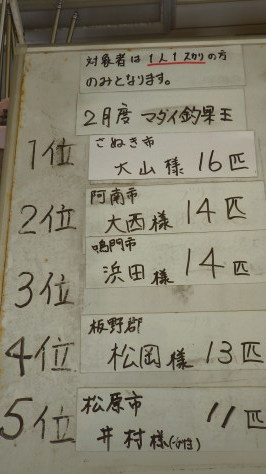 対象者は1人1スカリの方
のみとなります。
2月度 マダイ釣果王
1位
さぬき市
大山様 16匹
2位
阿南市
大西様 14匹
3位
鳴門市
浜田様 14匹
4位
板野郡
松岡様 13匹
5位
松原市
井村様 11匹